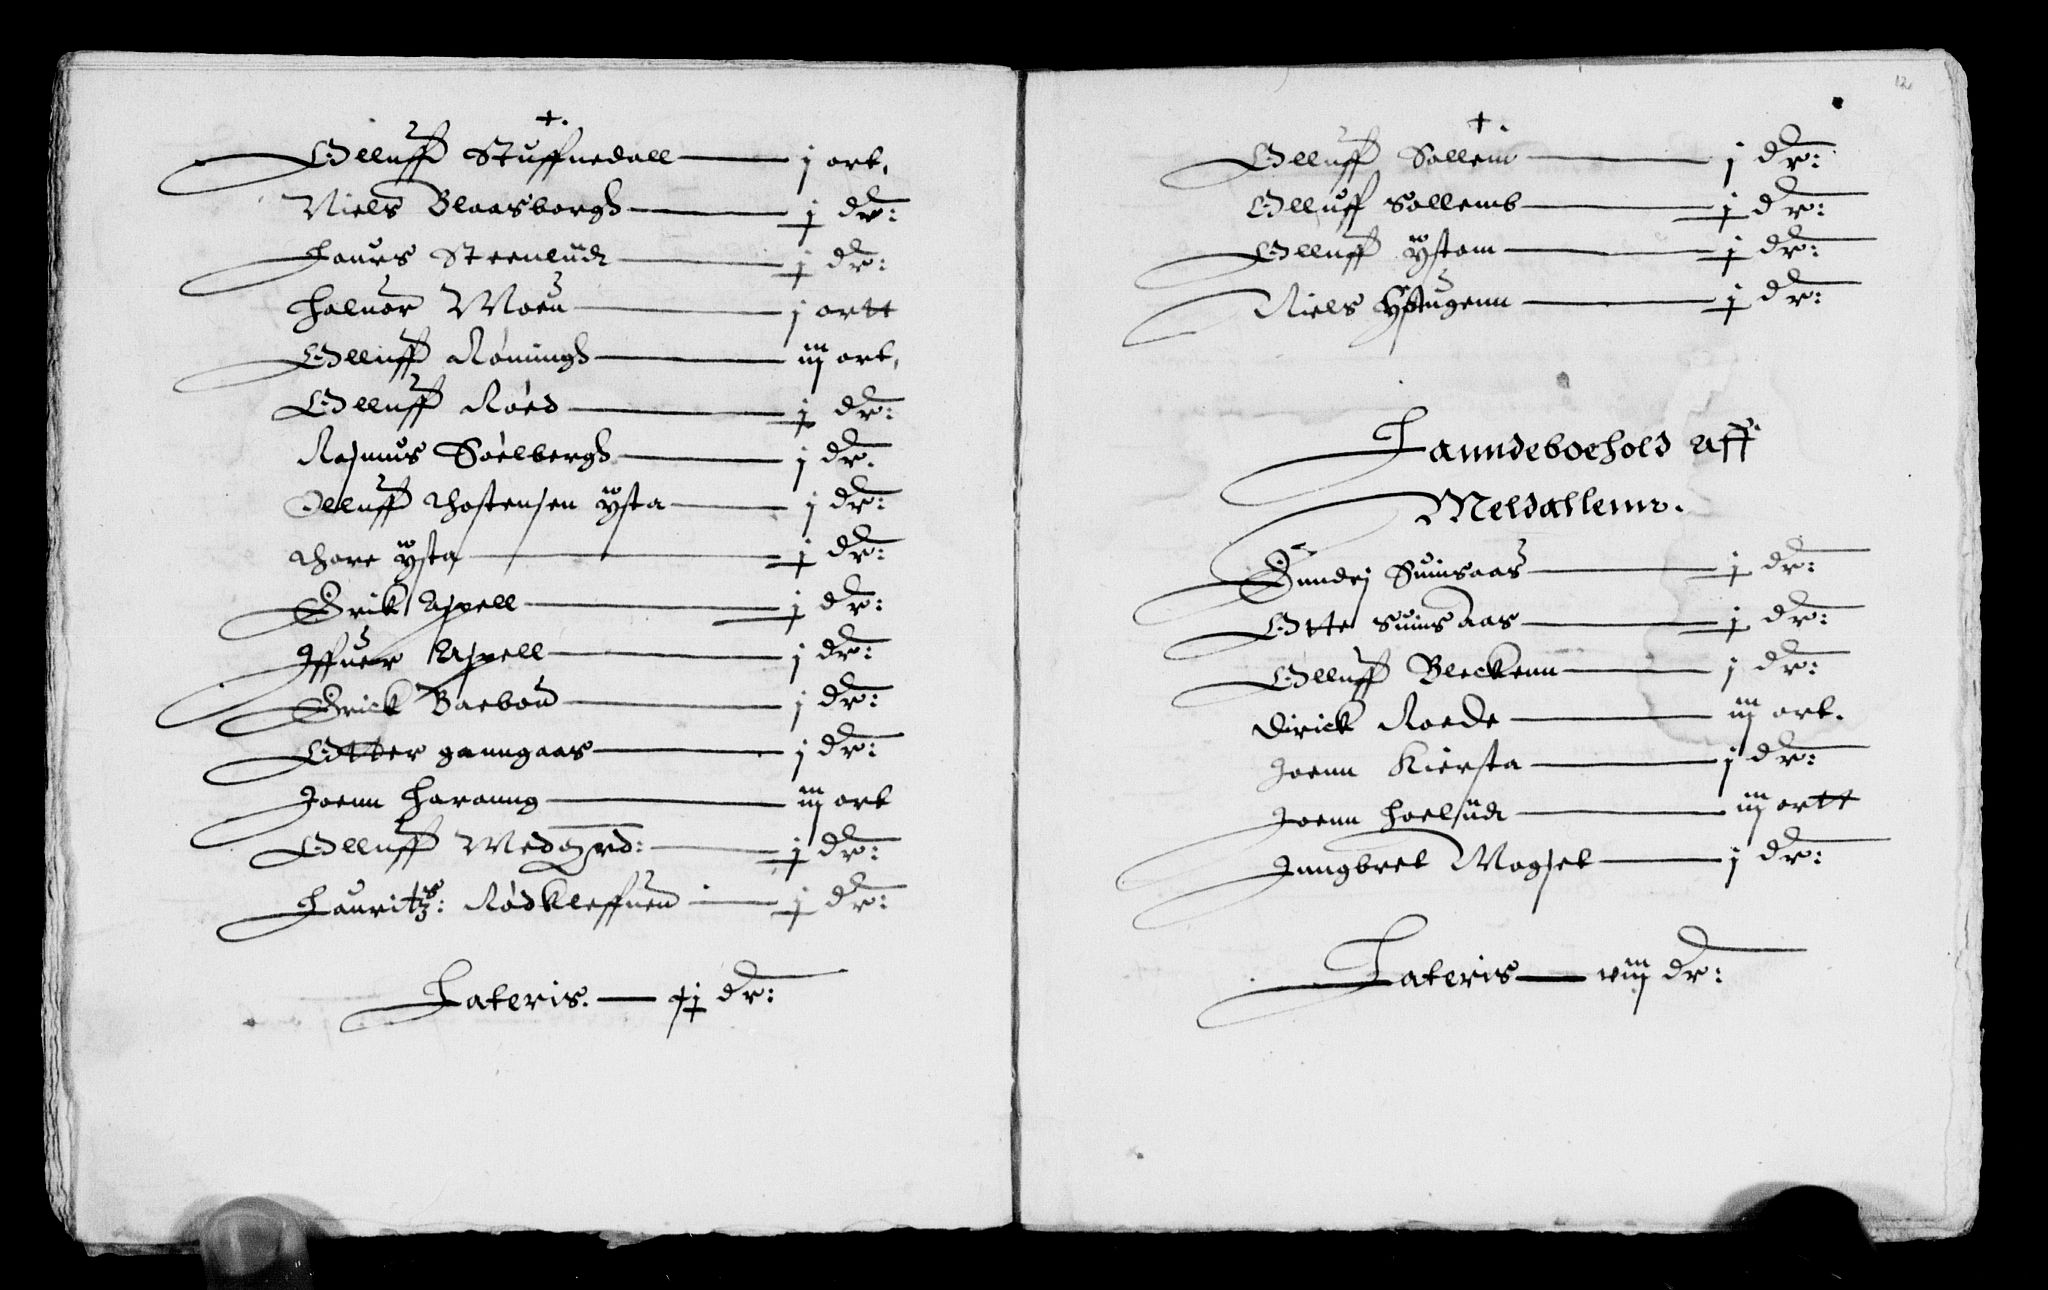 +.
Olluff Stuffuedall — j ort.
Niels Blaasborgh — j dr:
Laurs Steenlud — j dr:
Haluor Moeu — j ortt
Olluff Röningh — iij ort.
Olluff Röed — j dr:
Rasmus Söelbergh — j dr.
Olluff Thostensen ÿsta — j dr:
Thore ÿsta — j dr:
Erik Aspell — j dr:
Iffuer Aspell — j dr:
Erick Baebou — j dr:
Otter ganngaas — j dr:
Joenn Haranng — iij ort
Olluff Medgrd: — j dr:
Lauritz: Rödkleffuen — j dr:
Lateris. — xj dr:
12
+.
Olluff Sollem — j dr:
Olluff Sollemb — j dr:
Olluff ÿstom — j dr:
Niels Hougenn — j dr:
Lanndebohold aff
Meldallenn.
Gundej Suinsaas — j dr:
Otte Suinsaas — j dr:
Olluff Bleckenn — j dr:
Dirick Roede — iij ort.
Joenn Kiersta — j dr:
Joenn Hoelsud — iij ortt
Jungbret Mogset — j dr:
Lateris — viij dr: